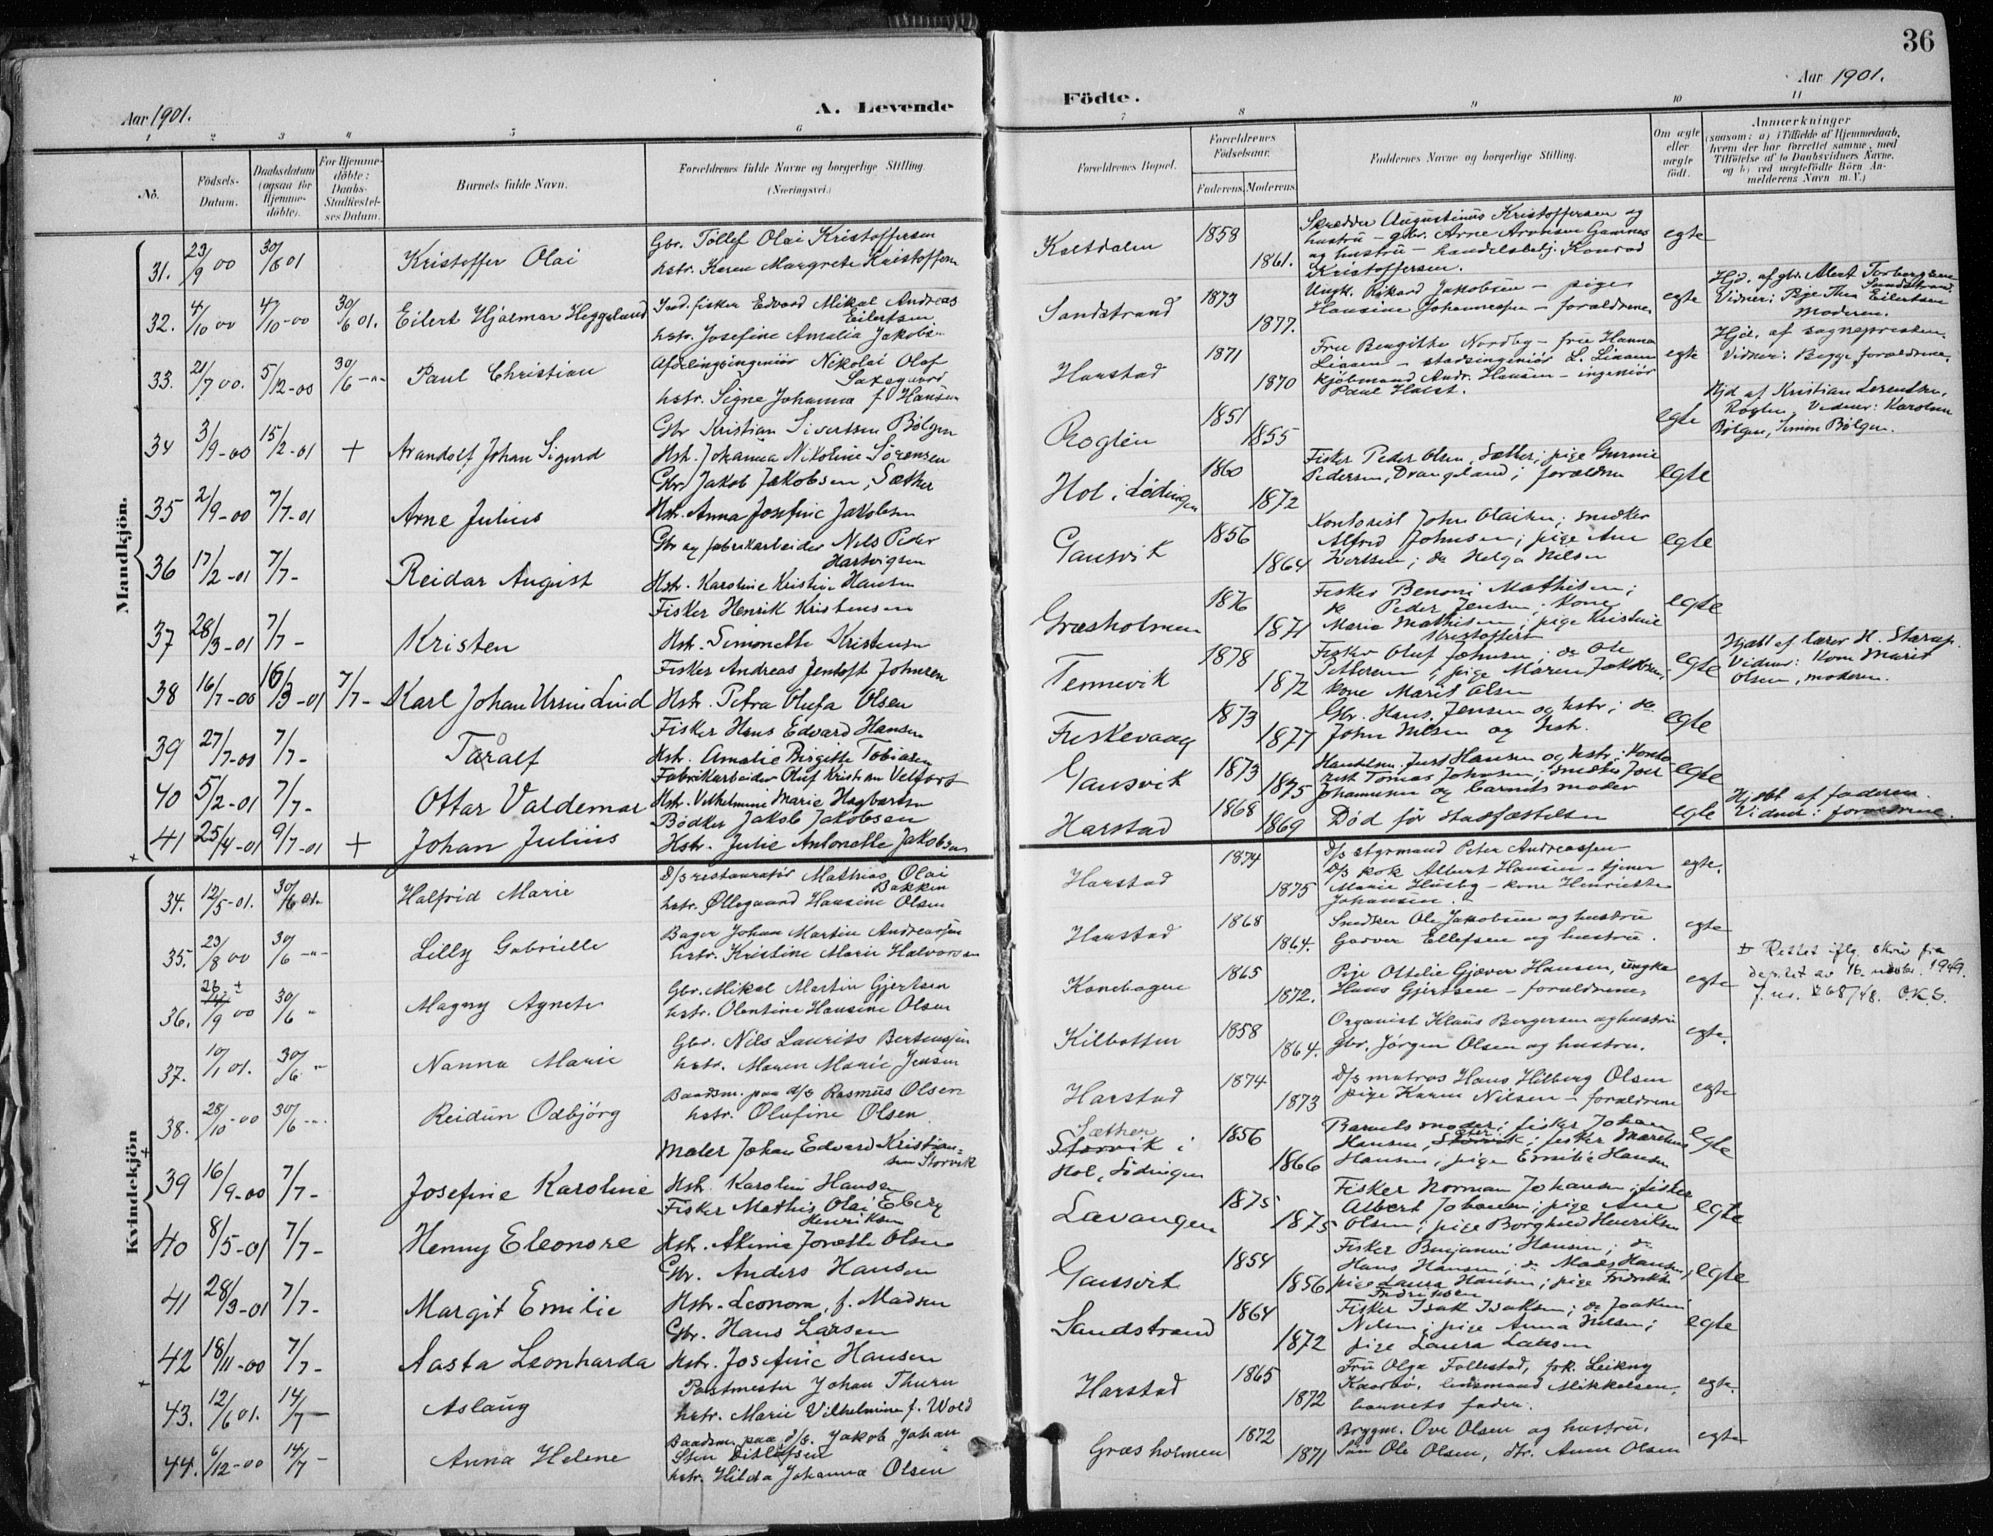 36
Aar 1901.
A. Levende
Födte.
Aar 1901.
1 2 3 4 5 6
7 8 9 10 11
No.
Födsels-Datum.
Daabsdatum (ogsaa for Hjemme-döbte).
For Hjemme-döbte: Daabs-Stadfæstel-ses Datum.
Barnets fulde Navn.
Forældrenes fulde Navne og borgerlige Stilling. (Næringsvei.)
Forældrenes Bopæl.
Forældrenes Födselsaar.
Faderens. Moderens.
Faddernes Navne og borgerlige Stilling.
Om ægte eller uægte födt.
Anmærkninger
(saasom: a) i Tilfælde af Hjemmedaab, hvem der har forrettet samme, med Tilföielse af to Daabsvidners Navne, og b) ved uægtefödte Börn An-melderens Navn m. V.)
Mandkjön.
31. 23/9 00 30/6 01 Kristoffer Olai
Gbr. Tollef Olai Kristoffersen
hstr. Karen Margrete Kristoffersen
Kaltdalen 1858 1861.
Skrædder Augustinus Kristoffersen og
hustru – gbr. Arne Aronsen
og hustru – handelsbetj. Konrad
Kristoffersen.
egte
32. 4/10 00 4/10-00 30/6 01. Eilert Hjalmar Heggelund
Ind. fisker Edvard Mikal Andreas
Eilertsen
hstr. Josefine Amalia Jakobs
Sandstrand 1873 1877.
Ungk. Rikard Jakobsen – pige
Hansine Johannessen – forældrene
egte
Hjd. af gbr. Albert Torbergsen
Sandstrand
Vidner: Pige Thea Eilertsen
Moderen.
33. 21/7 00. 5/12-00 30/6 -"- Paul Christian
Afdelingsingeniör Nikolai Olaf
Saxegaard
hstr. Signe Johanna f. Hansen
Harstad 1871 1870
Frue Bengitte Nordby – frue Hanna
Linaae – stadsingeniör L. Linaae
kjöbmand Andr. Hansen – ingeniör
Paul Holst.
egte
Hjd. af sognepresten
Vidner: Begge forældrene.
34 3/9-00 15/2-01 + Arandolf Johan Sigurd
Gbr Kristian Sivertsen Bölgen
Hstr. Johanna Nikoline Sörensen
Roglen 1851 1855
egte
Hjd af Kristian Lorentsen,
Roglen, Vidner: Karoline
Bölgen, Simon Bölgen.
35 2/9-00 7/7-01 Arne Julius
Gbr Jakob Jakobsen, Sæther
Hstr. Anna Josefine Jakobsen
Hol i Lödingen 1860 1872
Fisker Peder Olsen, Sæther; pige Gurine
Pedersen, Drangeland; forældre
egte
36 17/2-01 7/7- Reidar August
Gbr og fabrikarbeider Nils Peder
Hartvigsen
Hstr. Karoline Kristine Hansen
Gausvik 1856 1864
Kontorist John Olaisen; snedker
Alfred Johnsen; pige Ane
Ivertsen; do Helga Nilsen
egte
37 28/3-01 7/7- Kristen
Fisker Henrik Kristensen
Hstr. Simonette Kristensen
Græsholmen 1876 1871
Fisker Benoni Mathisen;
do Peder Jensen; kone
Maria Mathisen; pige Kristine
Kristoffers
egte
38 16/7-00 16/3-01 7/7- Karl Johan Ursin Lind
Fisker Andreas Jentoft Johnsen
Hstr. Petra Olufa Olsen
Tennevik 1878 1872
Fisker Oluf Johnsen; do Ole
Pettersen; pige Maren Jakobsen,
kone Marit Olsen
egte
Hjdbt af lærer H. Storup.
Vidner: Kone Marit
Olsen, moderen.
39 27/7-00 7/7- Taralf
Fisker Hans Edvard Hansen
Hstr. Amalie Birgitte Tobiasen
Fiskevaag 1873 1877
Gbr. Hans Jensen og hstr; do
John Nilsen og hstr.
egte
40 5/2-01 7/7- Ottar Valdemar
Fabrikarbeider Oluf Kristian Velfort
Hstr. Vilhelmine Marie Hagbartsen
Gausvik 1873 1875
Handelsm. Just Hansen og hstr; Konto-
rist Tomas Johnsen; snedker Joel
Johannesen og barnets moder
egte
41 25/4-01 9/7-01 + Johan Julius
Bödker Jakob Jakobsen
Hstr. Julie Antonette Jakobsen
Harstad 1868 1869
Död för stadfæstelsen
egte
Hjdbt af faderen.
Vidner: forældrene.
Kvindekjön
34. 12/5-01. 30/6 01. Halfrid Marie
D/s restauratör Mathias Olai
Bakken
hstr. Øllegaard Hansine Olsen
Harstad 1874 1875
D/s styrmand Peter Andreassen
D/s kok Albert Hansen – tjener
Marie Husby – kone Henriette
Johansen.
egte.
35. 23/8 00 30/6 -"- Lilly Gabrielle
Bager Johan Martin Andreassen
hstr. Kristine Marie Halvorsen
Harstad 1868 1864.
Snedker Ole Jakobsen og hustru
Garver Ellefsen og hustru.
egte
36. 26/9 00 30/6 " Magny Agnete
Gbr. Mikal Martin Gjertsen
hstr. Olentine Hansine Olsen
Kanebogen 1865 1872.
Pige Ottilie Gjæver Hansen, ungka
Hans Gjertsen – forældrene,
egte
Rettet iflg. skriv fra
dep.tet av 16. 1949.
J. nr. 268/48. O.K.S.
37. 10/1 01. 30/6 " Nanna Marie
Gbr. Nils Laurits Berteussen
hstr. Maren Marie Jensen
Kilbotten 1858 1864.
Organist Klaus Borgersen og hustru
Gbr. Jörgen Olsen og hustru.
egte.
38. 28/10-00 30/6 -"- Reidun Odbjörg
Baadsm. paa d/s Rasmus Olsen
hstr. Olufine Olsen.
Harstad 1874 1873
D/s matros Hans Hilberg Olsen
pige Karen Nilsen – forældrene
egte
39 16/9-00 7/7- Josefine Karoline
Maler Johan Edvard Kristian-
sen Storvik
Hstr. Karoline Hansen
Sæther
Storvik i
Hol, Lödingen 1856 1866
Barnets moder; fisker Johan
Hansen, Storvik; fisker Martinus
Hansen; pige Emilie Hansen
egte
40 8/5-01 7/7- Henny Eleonore
Fisker Mathis Olai Eberg
Henriksen
Hstr. Akima Jonette Olsen
Lavangen 1875 1875
Fisker Norman Johansen; fisker
Albert Johansen; pige Ane
Olsen; pige Borghild Henriksen
egte
41 28/3-01 7/7- Margit Emilie
Gbr. Anders Hansen
Hstr. Leonora, f. Madsen
Gausvik 1854 1856
Fisker Benjamin Hansen; do
Hans Hansen; do Mads Hansen,
pige Laura Hansen; pige Fredrikke
Fredriksen
egte
42 18/11-00 7/7- Aasta Leonharda
Gbr. Hans Larsen
Hstr. Josefine Hansen
Sandstrand 1864 1872
Fisker Isak Isaksen; do Joakim
Nilsen; pige Anna Nilsen;
pige Laura Larsen
egte
43. 12/6 01. 14/7- Aslaug
Postmester Johan Thurn
hstr. Marie Vilhelmine f. Wold
Harstad 1865 1872
Fru Olga Follestad, frk. Leikny
Kaarbö, lensmand Mikkelsen,
barnets fader.
egte.
44. 6/12-00 14/7- Anna Helene
Baadsm. paa d/s. Jakob Johan
Sten Ditlefsen
hstr. Hilda Johanna Olsen
Græsholmen 1872 1871
Brygm. Ove Olsen og hustru,
Sön Ole Olsen, dtr. Anne Olsen
egte